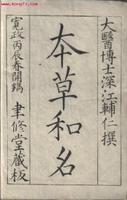 大醫博士深江輔仁撰
本草和名
寛政丙辰春開鐫　聿修堂藏板